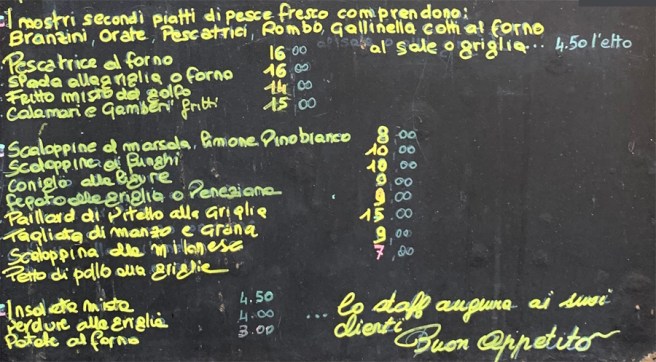 I nostri secondi piatti di pesce fresco comprendono:
Branzini, Orate, Pescatrici, Rombo, Gallinella cotti al forno
al sale o griglia... 4.50 l'etto
Pescatrice al forno 16,00
Spada alla griglia o forno 16,00
Fritto misto del golfo 14,00
Calamari e Gamberi fritti 15,00
Scaloppine al marsala, limone o vino bianco 8,00
Scaloppine ai Funghi 10,00
Coniglio alla ligure 10,00
Fegato alla griglia o Veneziana 9,00
Paillard di Vitello alla Griglia 9,00
Tagliata di manzo e Grana 15,00
Scaloppina alla milanese 9,00
Petto di pollo alla griglia 7,00
Insalata mista 4.50
Verdure alla griglia 4.00
Patate al forno 3.00
... Lo staff augura ai suoi
clienti Buon Appetito